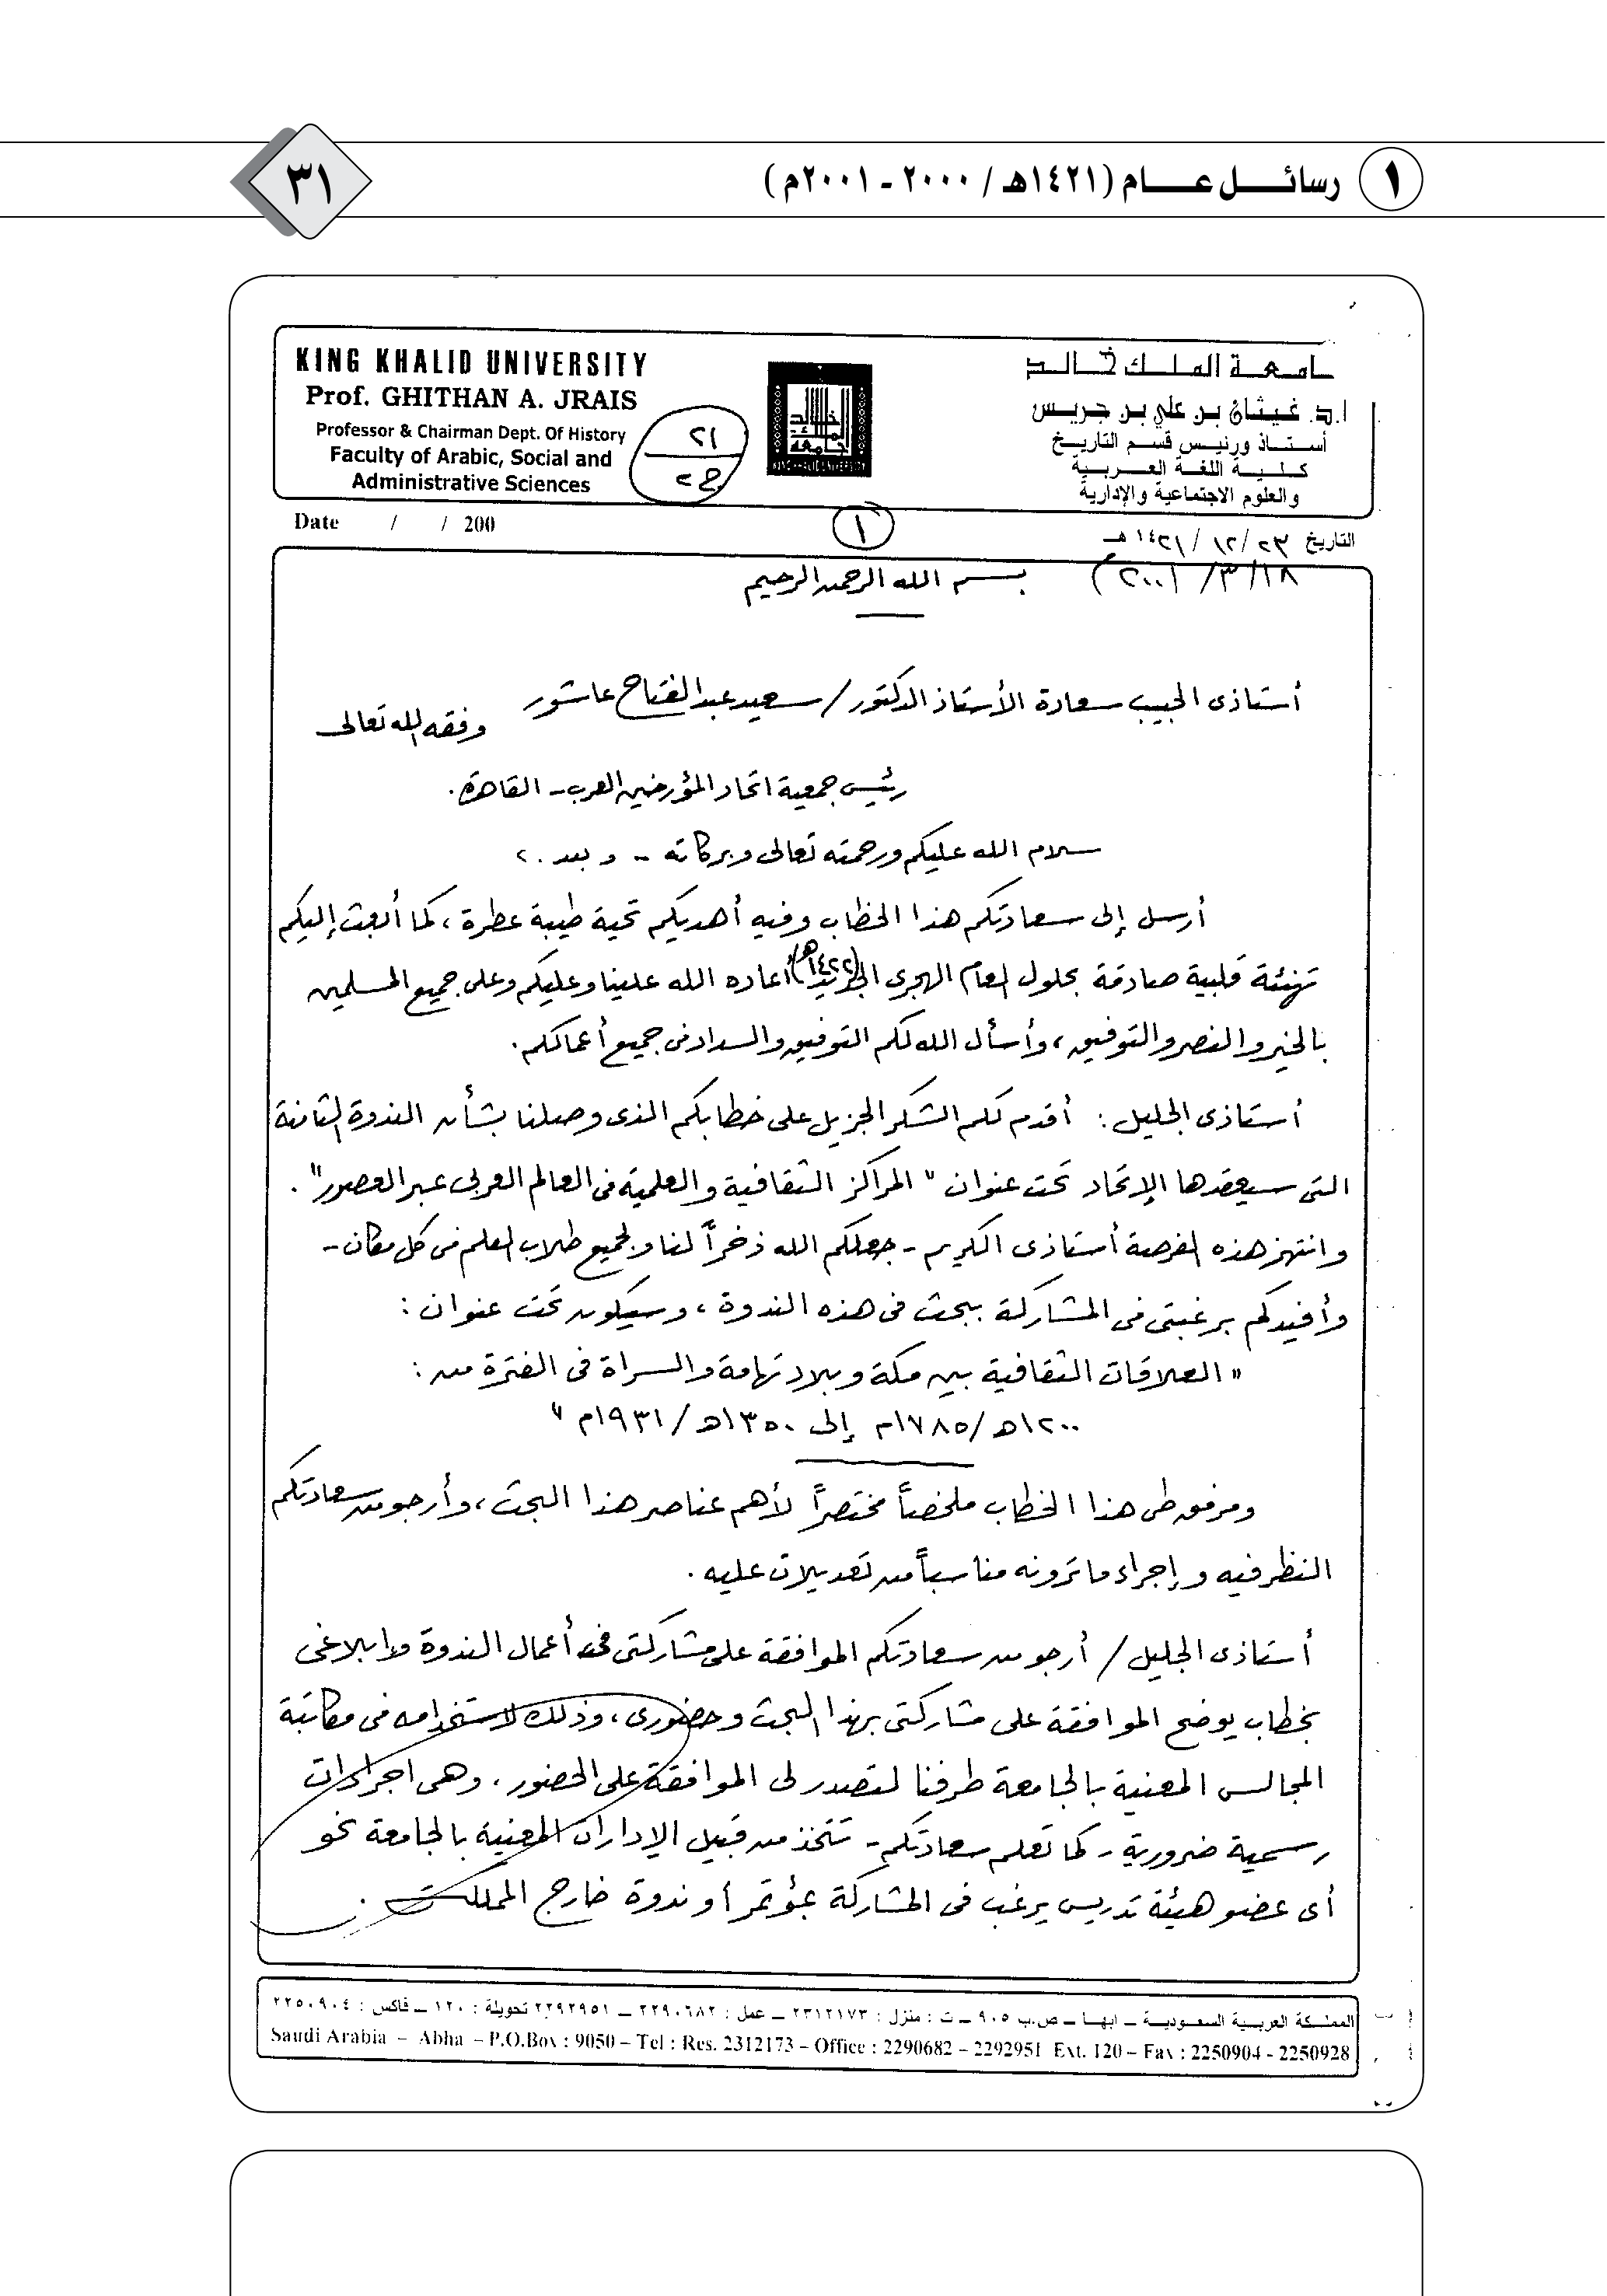 ١ رسائــــل عــــام (١٤٢١هـ / ٢٠٠٠ - ٢٠٠١م)
٣١
KING KHALID UNIVERSITY
Prof. GHITHAN A. JRAIS
Professor & Chairman Dept. Of History
Faculty of Arabic, Social and
Administrative Sciences
٢١
٢ج
KING KHALID UNIVERSITY
ـامعـة الملـك خـالـد
ا.د. غيثان بن علي بن جريس
أستـاذ ورئيـس قسـم التاريـخ
كـليـة اللغـة العـربيـة
والعلوم الاجتماعية والإدارية
Date / / 200
١
التاريخ ٢٣/ ١٢/ ١٤٢١هـ
١٨/ ٣/ ٢٠٠١م
بســم الله الرحمن الرحيم
أستاذى الحبيب سعادة الأستاذ الدكتور/ سعيد عبدالفتاح عاشور
وفقه الله تعالى
رئيس جمعية اتحاد المؤرخين العرب - القاهرة.
سلام الله عليكم ورحمته تعالى وبركاته - وبعد..
أرسل إلى سعادتكم هذا الخطاب وفيه أهديكم تحية طيبة عطرة، كما أبعث إليكم
تهنئة قلبية صادقة بحلول العام الهجرى الجديد (١٤٢٢هـ) أعاده الله علينا وعليكم وعلى جميع المسلمين
بالخير والنصر والتوفيق، وأسأل الله لكم التوفيق والسداد فى جميع أعمالكم.
أستاذى الجليل: أقدم لكم الشكر الجزيل على خطابكم الذى وصلنا بشأن الندوة الثامنة
التى سيعقدها الإتحاد تحت عنوان " المراكز الثقافية والعلمية فى العالم العربى عبر العصور".
وانتهز هذه الفرصة أستاذى الكريم - جعلكم الله ذخراً لنا ولجميع طلاب العلم فى كل مكان -
وأفيدكم برغبتى فى المشاركة ببحث فى هذه الندوة، وسيكون تحت عنوان:
" العلاقات الثقافية بين مكة وبلاد تهامة والسراة فى الفترة من:
١٢٠٠هـ/ ١٧٨٥م إلى ١٣٥٠هـ/ ١٩٣١م "
ومرفق طى هذا الخطاب ملخصاً مختصراً لأهم عناصر هذا البحث، وأرجو من سعادتكم
النظر فيه وإجراء ما ترونه مناسباً من تعديلات عليه.
أستاذى الجليل/ أرجو من سعادتكم الموافقة على مشاركتى فى أعمال الندوة وابلاغى
بخطاب يوضح الموافقة على مشاركتى بهذا البحث وحضورى، وذلك لاستخدامه فى مكاتبة
المجالس المعنية بالجامعة طرفنا لتصدر لى الموافقة على الحضور. وهى اجراءات
رسمية ضرورية - كما تعلم سعادتكم - تتخذ من قبل الإدارات المعنية بالجامعة نحو
أى عضو هيئة تدريس يرغب فى المشاركة بمؤتمر أو ندوة خارج المملكة.
المملكة العربية السعودية ــ ابهـا ــ ص.ب ٩٠٥ ــ ت : منزل : ٢٣١٢١٧٣ ــ عمل : ٢٢٩٠٦٨٢ ــ ٢٢٩٢٩٥١ تحويلة : ١٢٠ ــ فاكس : ٢٢٥٠٩٠٤
Saudi Arabia – Abha – P.O.Box : 9050 – Tel : Res. 2312173 – Office : 2290682 – 2292951 Ext. 120 – Fax : 2250904 - 2250928